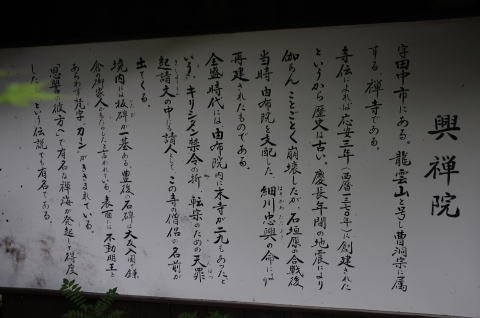 興禅院
字田中市にある。龍雲山と号し曹洞宗に属
する禅寺である。
寺伝によれば応安三年(西暦一三七〇年)に創建された
というから歴史は古い。慶長年間の地震により
伽らんことごとく崩壊したが石垣原の合戦後
当時由布院を支配した、細川忠興の命により
再建されたものである。
全盛時代には由布院内に末寺が二九もあったと
いう。キリシタン禁令の折、転宗のための天罰
起請文の中に請人として、この寺の僧侶の名前が
出てくる。
境内には板碑が一基ある。豊後石碑で大友
令の御家人
あらわす梵字カンがきざまれている。
「恩讐の彼方へ」で有名な禅海が発起して得度
した、という伝説でも有名である。